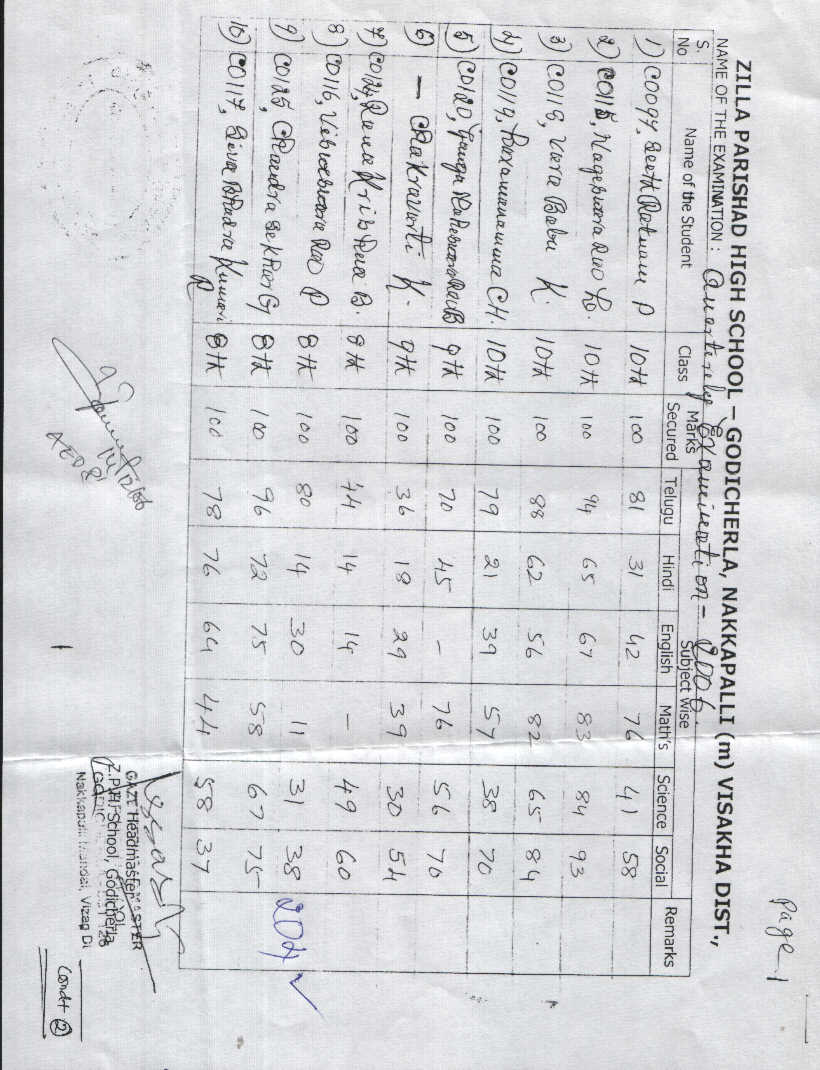 Page 1
ZILLA PARISHAD HIGH SCHOOL – GODICHERLA, NAKKAPALLI (m) VISAKHA DIST.,
NAME OF THE EXAMINATION : Quarterely Examination - 2006.
S. No Name of the Student Class Marks Secured Subject Wise Remarks
Telugu Hindi English Math's Science Social
1) C0097, Seeth Ratnam P 10th 100 81 31 42 76 41 58
2) C0115, Nageswara Rao L. 10th 100 94 65 67 83 84 93
3) C0118, Vara Babu K. 10th 100 88 62 56 82 65 84
4) C0119, CH. 10th 100 79 21 39 57 38 70
5) C0120, Ganga B 9th 100 70 45 - 76 56 70
6) — Chakravarti K. 9th 100 36 18 29 39 30 54
7) C0124, Rama Krishna B. 8th 100 44 14 14 - 49 60
8) C0116, Rao P 8th 100 80 14 30 11 31 38
9) C0125, Chandra Sekhar G 8th 100 96 72 75 58 67 75
10) C0117, Siva Bhadra Kumari R 8th 100 78 76 64 44 58 37
GAZT Headmaster
Z.P.H. School, Godicherla
Nakkapalli Mandal, Vizag Di
Condt (2)